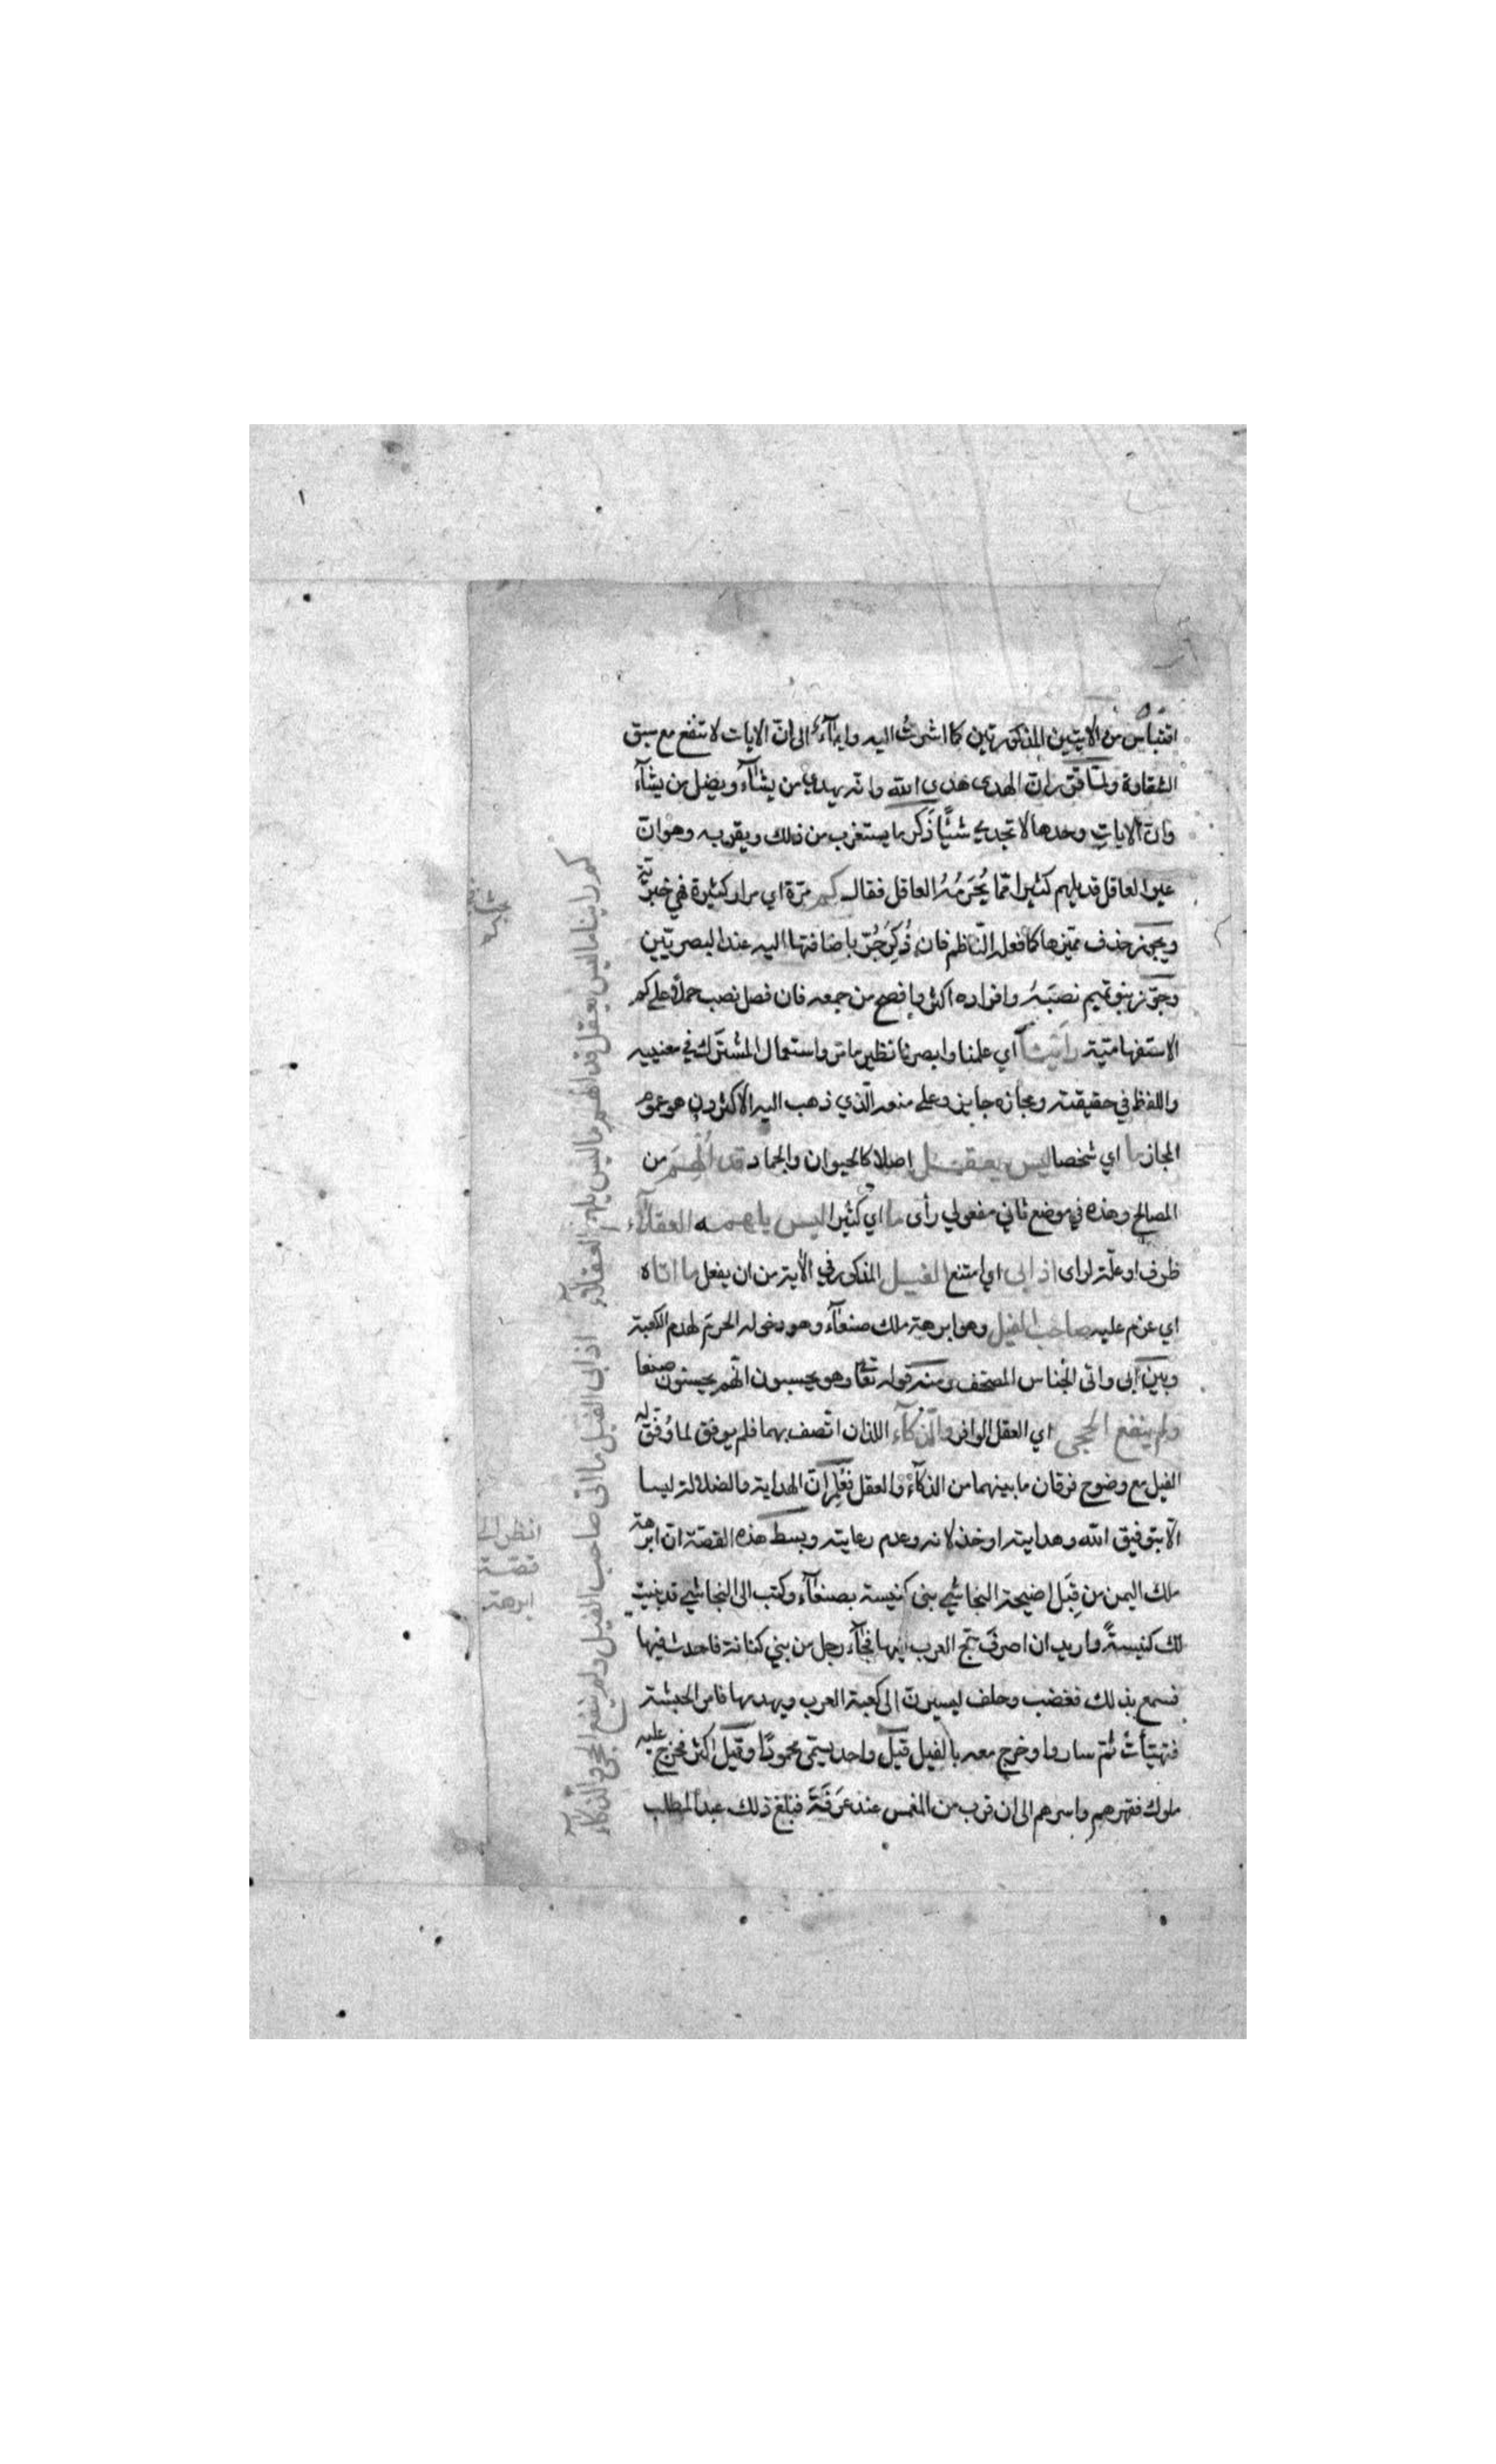 اقتباس من الايتين المذكورتين كما اشرتُ اليه وايمآءٌ الى انّ الايات لا تنفع مع سبق
الشقاوة ولمّا قرّر انّ الهدى هدى الله وانّه يهدي من يشآء ويضل من يشآء
وانّ الايات وحدها لا تجدي شيئًا ذكر ما يستغرب من ذلك ويقربه وهو انّ
غير العاقل قد يلهم كثيرا ممّا يُحْرَمُهُ العاقل فقال كم مرّة اي مرار كثيرة فهي خبريّة
ويجوز حذف مميّزها كما فعله النّاظم فان ذُكِرَ جُرّ باضافتها اليه عند البصريّين
وجوّز بنو تميم نصبَهُ وافراده اكثر وافصح من جمعه فان فصل نصب حملًا على كم
الاستفهاميّة رأَيْنَا اي علمنا وابصرنا نظير ما مرّ واستعمال المشترك في معنييه
واللفظ في حقيقته ومجازه جايز وعلى منعه الّذي ذهب اليه الاكثرون هو عموم
المجاز ما اي شخصا ليس يعقل اصلا كالحيوان والجماد قد اُلْهِمَ من
المصالح وهذه في موضع ثاني مفعولي رأى ما اي كثيرا ليس يلهمه العقلآء
ظرف او علّة لراى اذ ابى اي امتنع الفيل المذكور في الآية من ان يفعل ما اتاه
اي عزم عليه صاحب الفيل وهو ابرهة ملك صنعآء وهو دخوله الحرم لهدم الكعبة
وبين ابى واتى الجناس المصحّف ومنه قوله تعالى وهم يحسبون انّهم يحسنون صنعا
ولم ينفع الحجى اي العقل الوافر والذّكآء اللذان اتّصف بهما فلم يوفق لما وُفّق له
الفيل مع وضوح فرقان ما بينهما من الذكآء والعقل فعُلِم انّ الهداية والضلالة ليسا
الّا بتوفيق الله وهدايته او خذلانه وعدم رعايته وبسط هذه القصّة انّ ابرهة
ملك اليمن من قِبَل اضحمة النجاشي بنى كنيسة بصنعآء وكتب الى النجاشي قد بنيت
لك كنيسةً واريد ان اصرف حج العرب اليها فجآء رجل من بني كنانة فاحدث فيها
فسمع بذلك فغضب وحلف ليسيرنّ الى كعبة العرب ويهدمها فامر الحبشة
فتهيّأتْ ثمّ ساروا وخرج معه بالفيل قيل واحد يسمّى محمودًا وقيل اكثر فخرج عليه
ملوك فقهرهم واسرهم الى ان قرب من المغمس عند عَرَفَةَ فبلغ ذلك عبد المطلب
كم راينا ما ليس يعقل قد الهم ما ليس يلهم العقلآء اذ ابى الفيل ما اتى صاحب الفيل ولم ينفع الحجى والذّكآء
انظر الى
قصّة
ابرهة